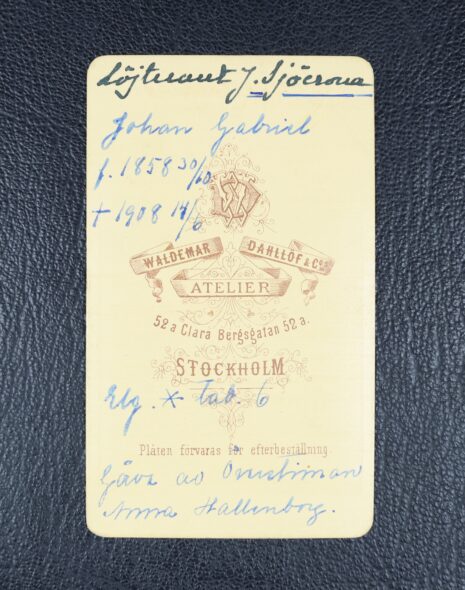 Löjtnant J. Sjöcrona
Johan Gabriel
f. 1858 30/10
† 1908 14/6
WD
WALDEMAR DAHLLÖF & Co.
ATELIER
52 a Clara Bergsgatan 52 a.
STOCKHOLM
Elg. * Tab. 6
Plåten förvaras för efterbeställning.
Gåva av
Anna Hallenborg.